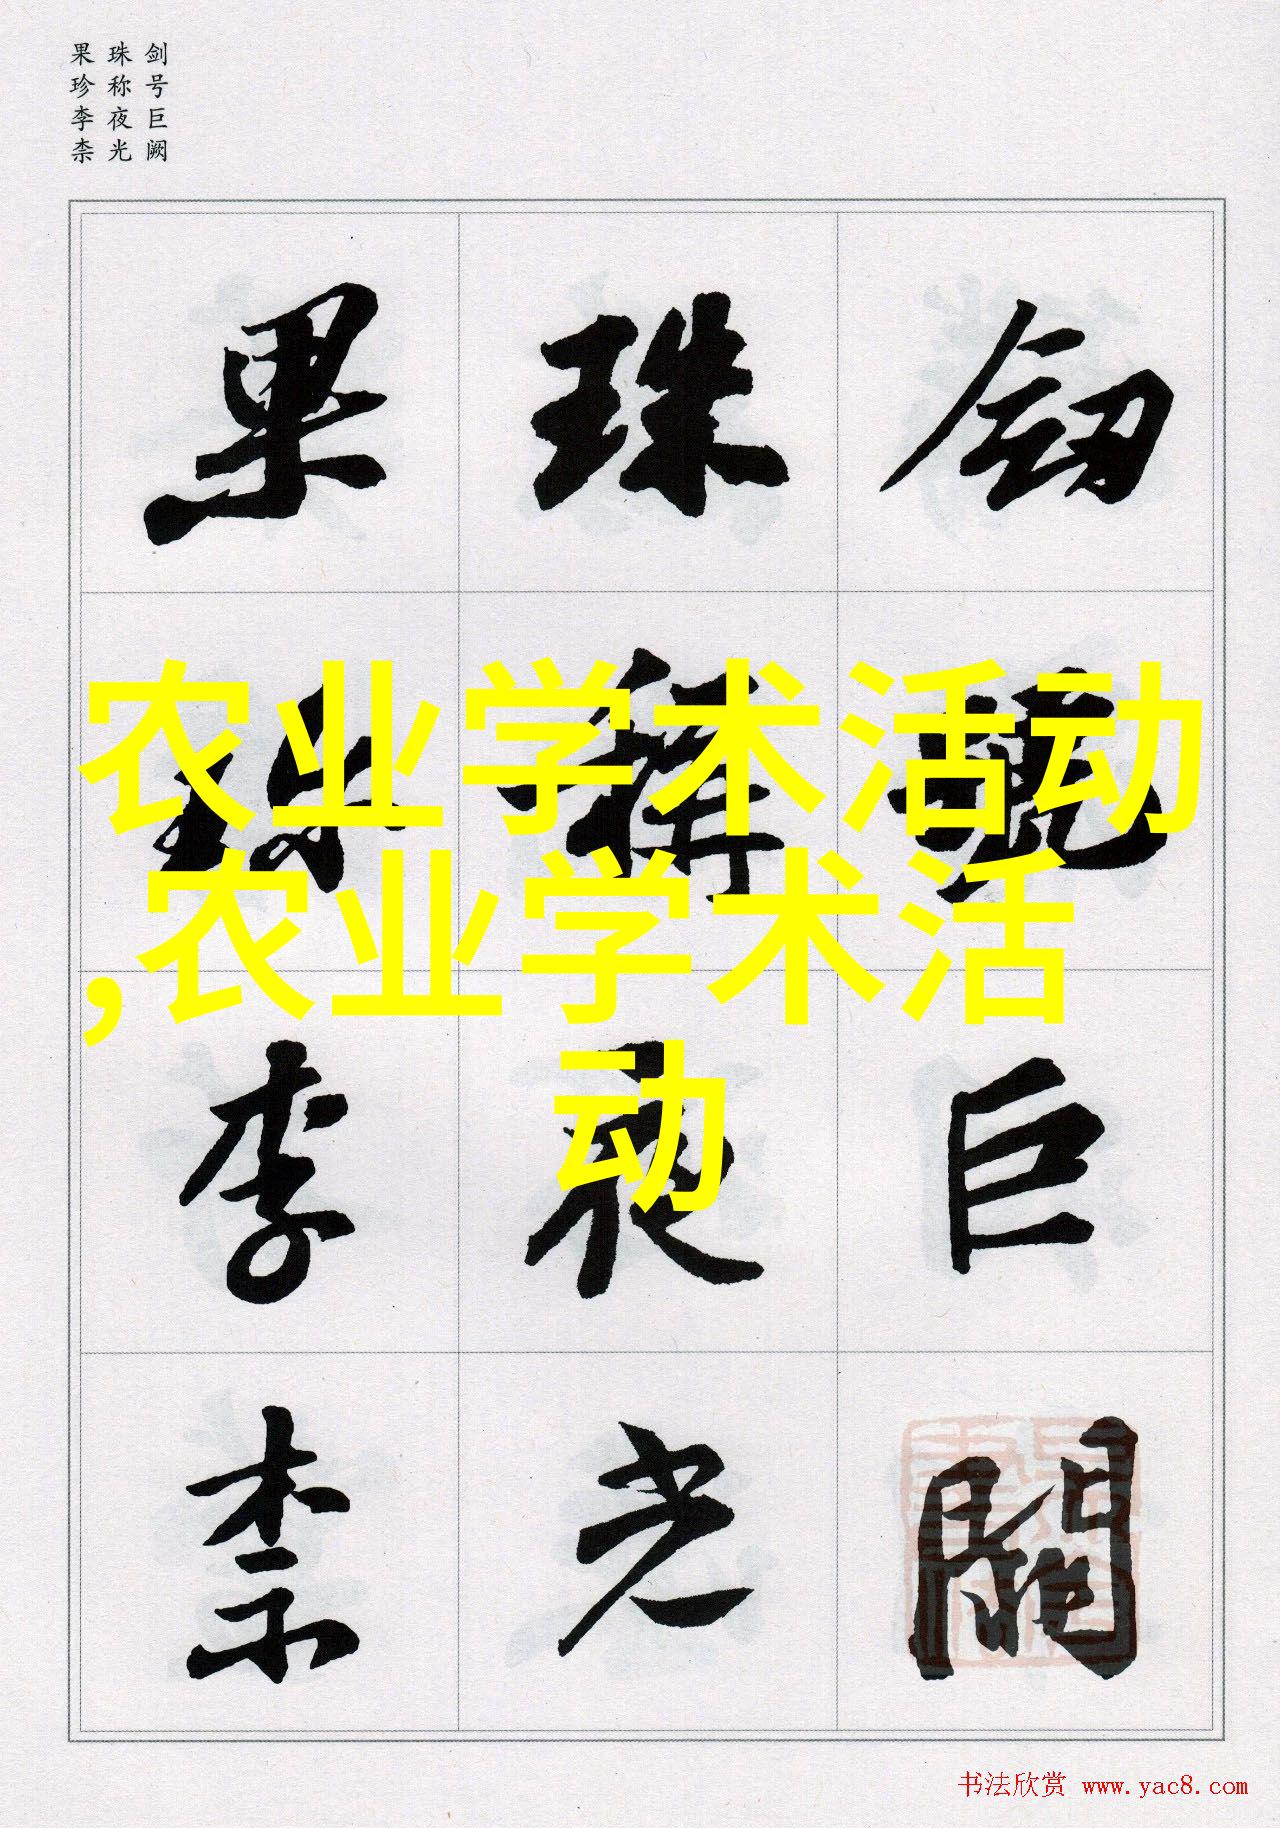 剑号巨阙
珠称夜光
果珍李柰
釰號巨闕
珠稱夜光
果珍李柰
农业学术活动
,农业学术活
动
书法欣赏 www.yac8.com